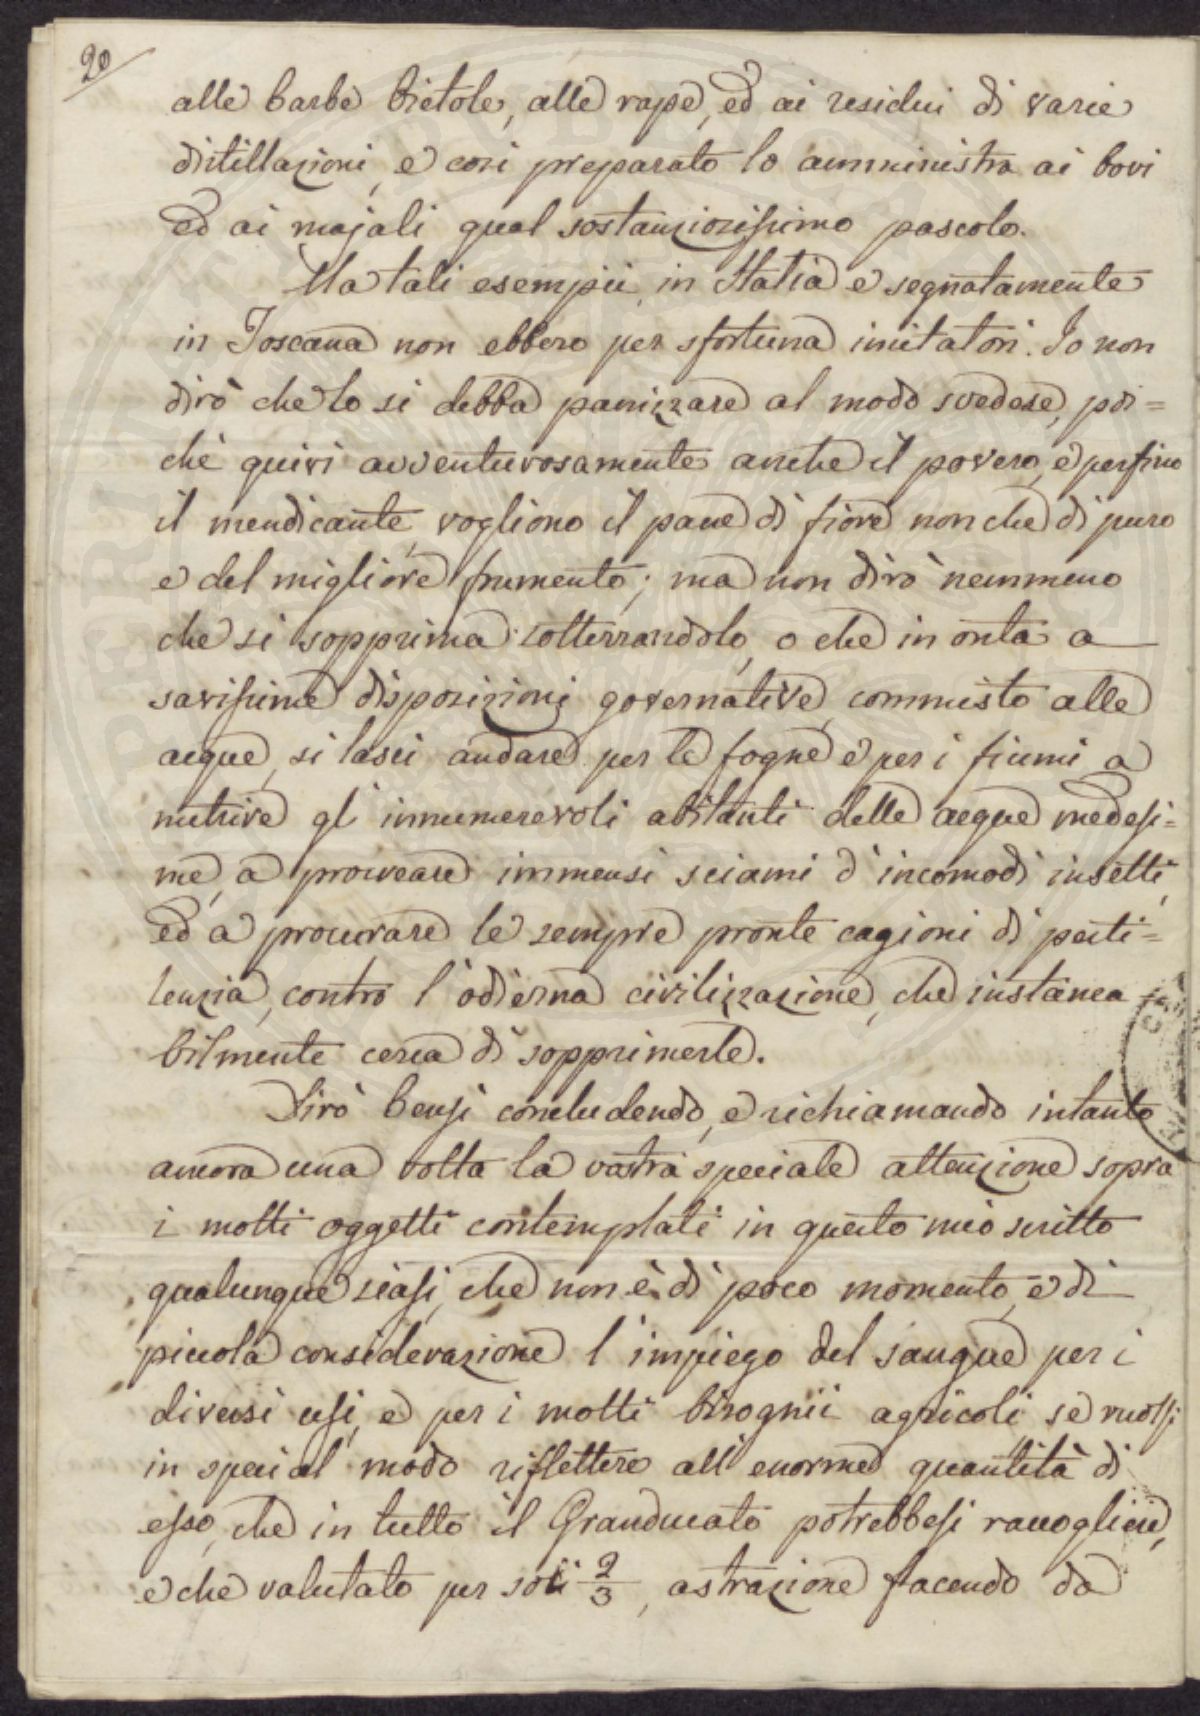 20
alle barbe bietole, alle rape, ed ai residui di varie
distillazioni, e così preparato lo amministra ai bovi
ed ai majali qual sostanziosissimo pascolo.
Ma tali esempii, in Italia e segnatamente
in Toscana non ebbero per sfortuna imitatori. Io non
dirò che lo si debba panizzare al modo svedese, poi=
chè quivi avventurosamente anche il povero, e perfino
il mendicante, vogliono il pane di fiore non che di puro
e del migliore frumento; ma non dirò nemmeno
che si sopprima sotterrandolo, o che in onta a
savissime disposizioni governative, commisto alle
acque, si lasci andare per le fogne e per i fiumi a
nutrire gl'innumerevoli abitanti delle acque medesi=
me, a procreare immensi sciami d'incomodi insetti,
ed a procurare le sempre pronte cagioni di pesti=
lenzia, contro l'odierna civilizzazione, che instanca=
bilmente cerca di sopprimerle.
Dirò bensì concludendo, e richiamando intanto
ancora una volta la vostra speciale attenzione sopra
i molti oggetti contemplati in questo mio scritto
qualunque siasi, che non è di poco momento, e di
piccola considerazione l'impiego del sangue per i
diversi usi, e per i molti bisognii agricoli, se vuolsi
in special modo riflettere all'enorme quantità di
esso, che in tutto il Granducato potrebbesi raccogliere,
e che valutato per soli 2/3, astrazione facendo da